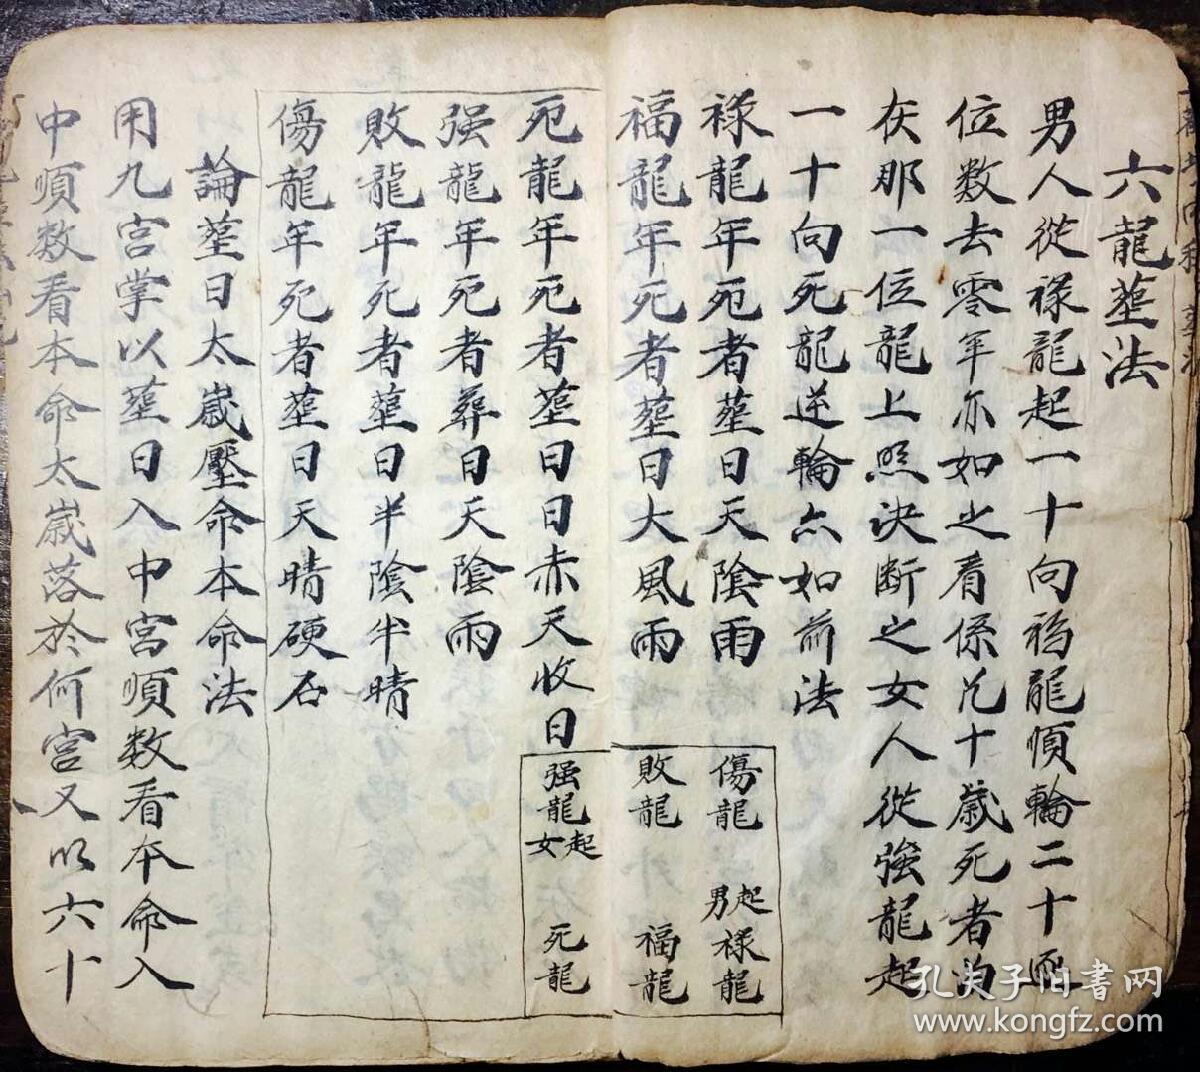 六龍塟法
男人從祿龍起一十向福龍順輪二十逐
位数去零年亦如之看係几十歲死者為
在那一位龍上照決断之女人從強龍起
一十向死龍逆輪亦如前法
祿龍年死者塟日天陰雨
福龍年死者塟日大風雨
死龍年死者塟日日赤天收日
强龍年死者葬日天陰雨
敗龍年死者塟日半陰半晴
傷龍年死者塟日天晴硬石
傷龍 男起祿龍
敗龍 福龍
强龍女起 死龍
論塟日太歲壓命本命法
用九宮掌以塟日入中宮順数看本命入
中順数看本命太歲落於何宮又以六十
孔夫子旧書网
www.kongfz.com